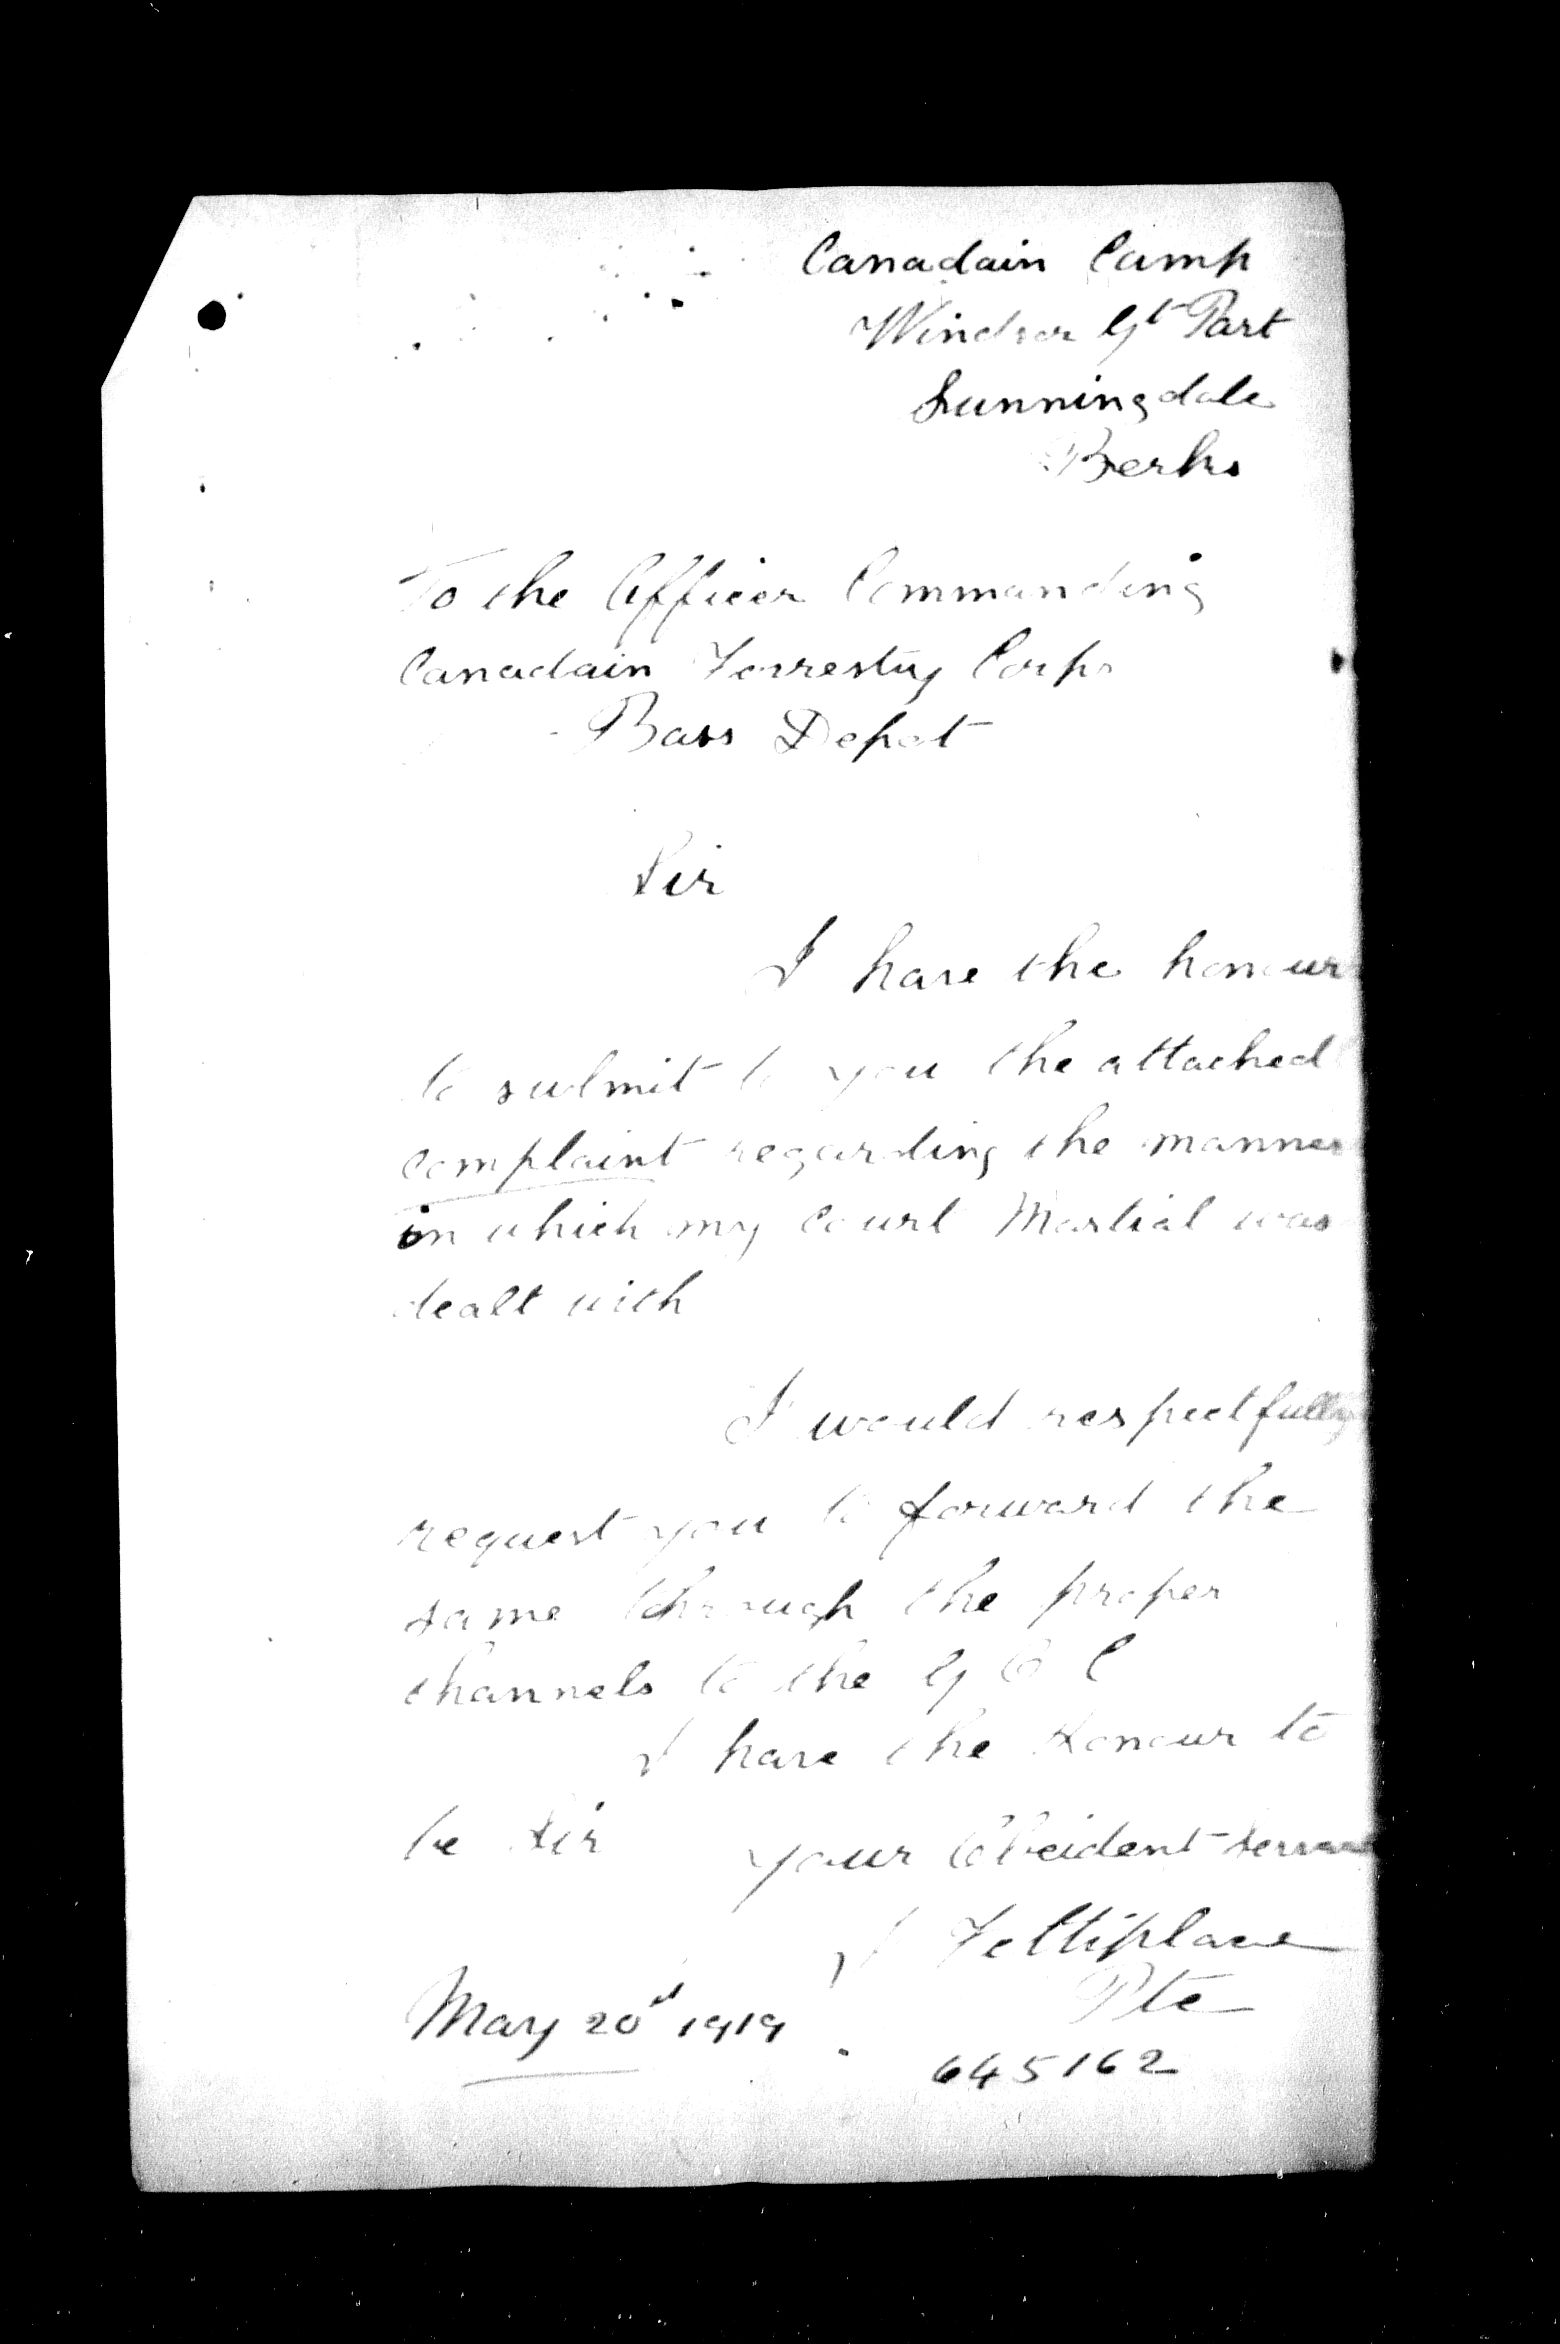 Canadain Camp
Windsor Gt Part
Sunningdale
Berks
To the Officer Commanding
Canadain Forrestry Corps
Bass Depot
Sir
I have the honour
to submit to you the attached
complaint regarding the manner
in which my Court Martial was
dealt with
I would respectfully
request you to forward the
same through the proper
channels to the G O C
I have the Honour to
be Sir your Obeident Servant
J Fettiplace
Pte
May 20th 1919
645162